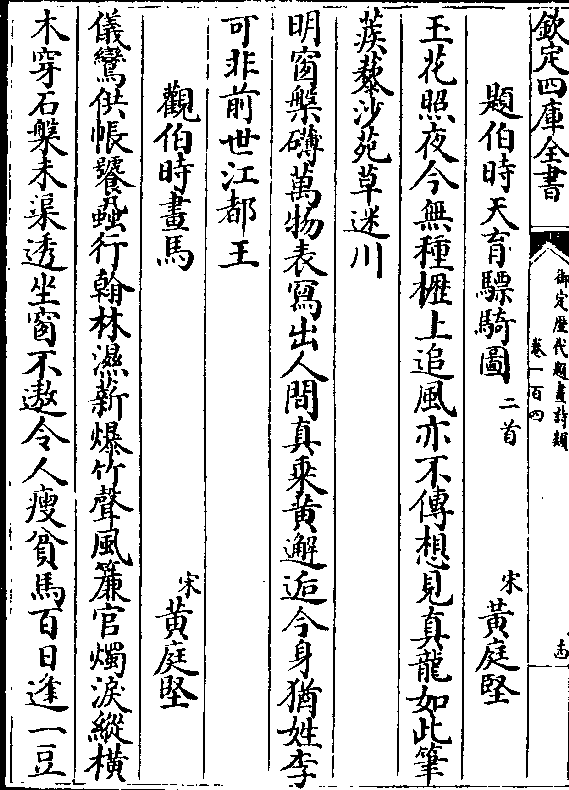 欽定四庫全書
御定歴代題畫詩類
卷一百四
題伯時天育驃騎圖 二首 宋 黃庭堅
玉花照夜今無種櫪上追風亦不傳想見真龍如此筆
蒺藜沙苑草迷川
明窗槃礴萬物表寫出人間真乘黃邂逅今身猶姓李
可非前世江都王
觀伯時畫馬 宋 黃庭堅
儀鸞供帳饕蝨行翰林濕薪爆竹聲風簾官燭淚縱橫
木穿石槃未渠透坐窗不遨令人瘦貧馬百日逢一豆